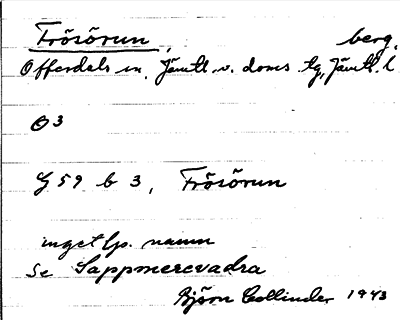 Frösörun, berg.
Offerdals sn, Jämtl. v. doms. tg, Jämtl. l
Ö 3
G 59 b 3, Frösörun
inget lp. namn
Se Sappmerevadra
Björn Collinder 1943